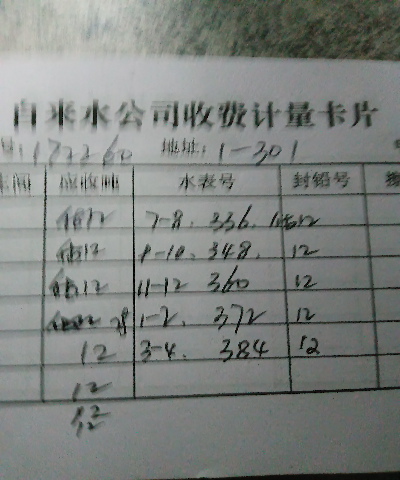 自来水公司收费计量卡片
号:172260 地址:1-301
应收吨 水表号 封铅号
12 7-8. 336. 12
12 9-10. 348. 12
12 11-12 360 12
1-2. 372 12
12 3-4. 384 12
12
12
12